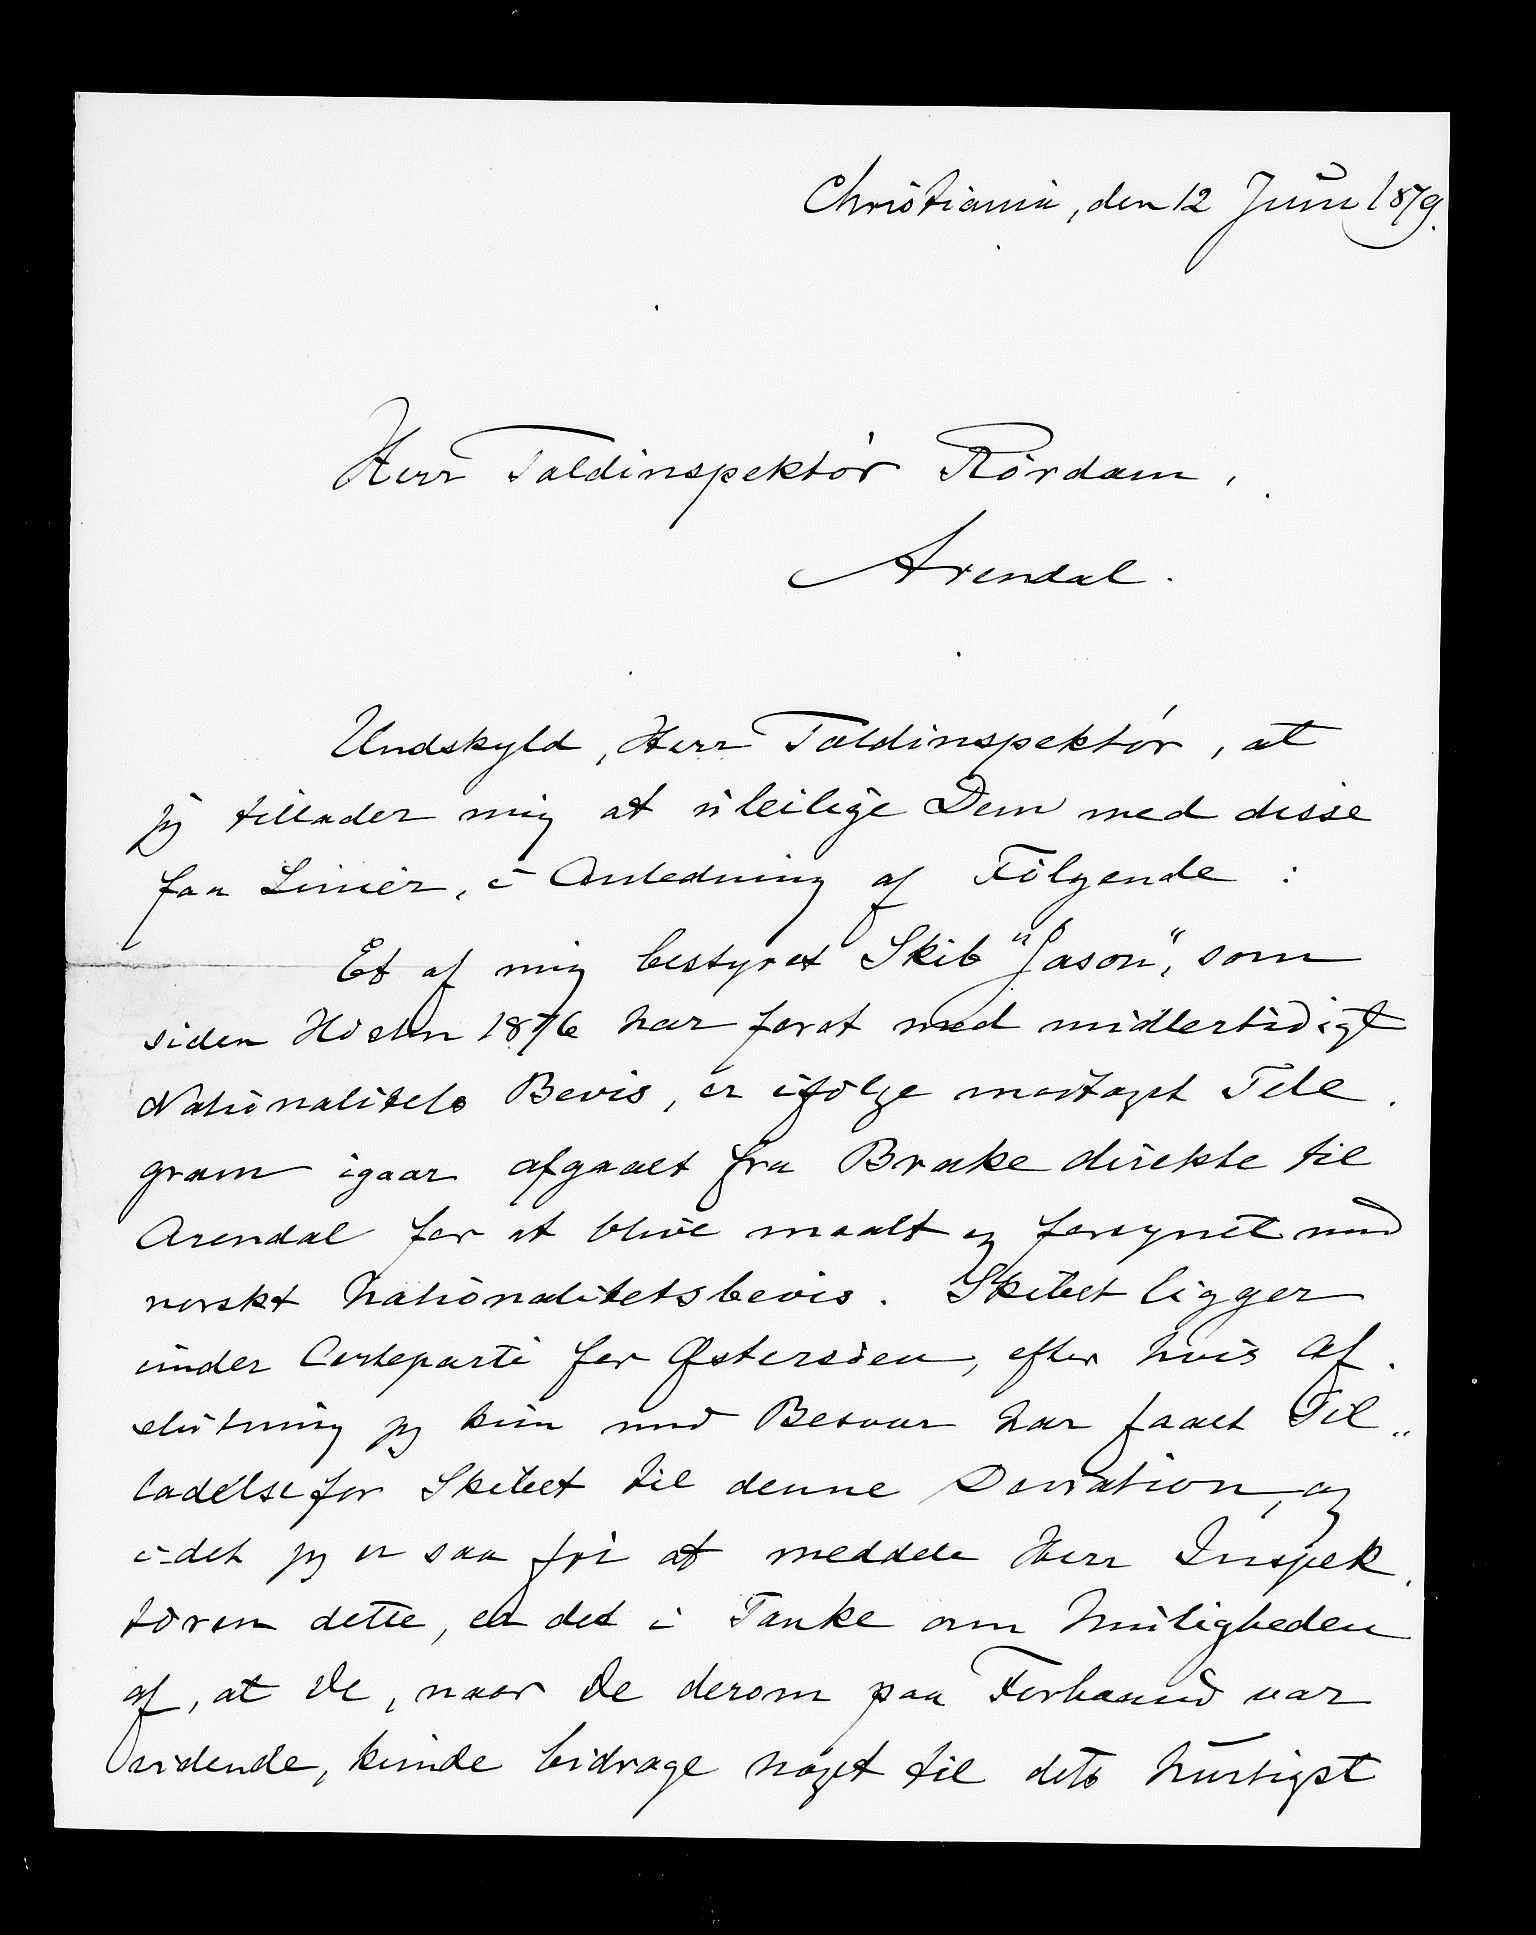 Christiania, den 12 Juni 1879.
Herr Toldinspektör Rördam,
Arendal.
Undskyld, Herr Toldinspektör, at
jeg tillader mig at uleilige Dem med disse
faa Linier, i Anledning af Fölgende :
Et af mig bestyret Skib "Jason", som
siden Hösten 1876 har faret med midlertidigt
Nationalitets Bevis, er ifölge modtaget Tele
gram igaar afgaaet fra Brake direkte til
Arendal for at blive maalt og forsynet med
norskt Nationalitetsbevis. Skibet ligger
under Certeparti for Østersöen, efter hvis Af
slutning jeg kun med Besvær har faaet Til„
ladelse for Skibet til denne Deviation, og
idet jeg er saa fri at meddele Herr Inspek
tören dette, er det i Tanke om Muligheden
af, at De, naar De derom paa Forhaand var
vidende, kunde bidrage noget til dets hurtigst